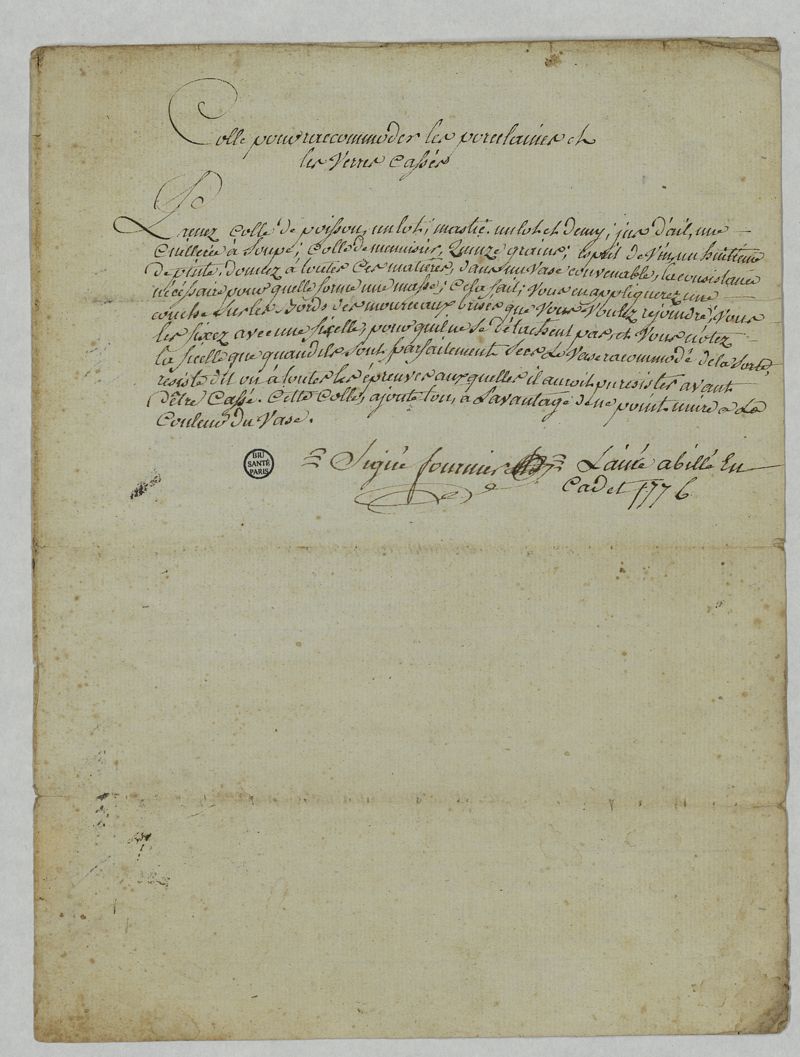 Colle pour raccommoder les porcelaines et
les Verres Cassés
Prenez Colle de poisson, un lot; mastic un lot et demy; jus d'ail, une
Cuillerée à Soupe; Colle de menuisier, quinze grains; esprit de Vin, un huitieme
de pinte, donnez à toutes Ces matieres, dans un Vase convenable, la consistance
nécéssaire pour quelle forme une masse; Cela fait; Vous en appliquerez une
couche Sur les Bords des mourceaux brisés que Vous Voulez rejoindre; Vous
les fixez avec une ficelle, pour quil ne se détachent pas, et Vous n'otez
la ficelle que quand ils Sont parfaitement Secs Le Vase racommodé de la Sorte,
resiste dit on à toutes les épreuves auxquelles il auroit pu resister avant
d'être Cassé. Cette Colle, ajoute ton, a L'avantage de ne point nuire a La
Couleur du Vase.
BIU
SANTÉ
PARIS
Signé fournier L'ainé abillé En
Cadet 1776